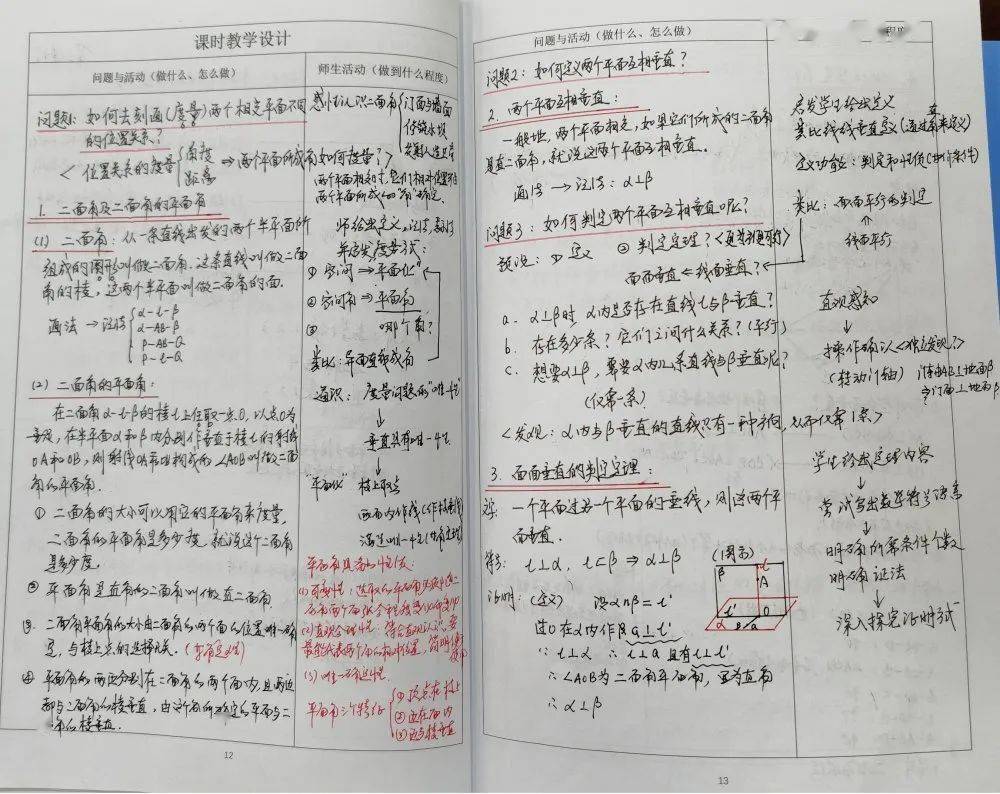 课时教学设计
问题与活动（做什么、怎么做）
师生活动（做到什么程度）
问题1：如何去刻画(度量)两个相交平面不同
的位置关系？
<位置关系的度量{角度
距离
⇒两个平面所成角如何度量？>
1. 二面角及二面角的平面角
(1) 二面角：从一条直线出发的两个半平面所
组成的图形叫做二面角，这条直线叫做二面
角的棱，这两个半平面叫做二面角的面.
画法→记法{α-l-β
α-AB-β
P-AB-Q
P-l-Q
(2) 二面角的平面角：
在二面角α-l-β的棱l上任取一点O，以点O为
垂足，在半平面α和β内分别作垂直于棱l的射线
OA和OB，则射线OA和OB构成的∠AOB叫做二面
角的平面角.
① 二面角的大小可以用它的平面角来度量，
二面角的平面角是多少度，就说这个二面角
是多少度.
② 平面角是直角的二面角叫做直二面角.
③ 二面角平面角的大小由二面角的两个面的位置唯一确
定，与棱上点的选择无关.
④ 平面角的两边分别在二面角的两个面内，且两边
都与二面角的棱垂直，由这个角所确定的平面与二
面角的棱垂直.
感性认识二面角{门面与墙面
两个平面相交时，它们相对位置
师给出定义，记法，
① 空间⇒"平面化"
② 空间角⇒平面角
③ 哪个角？
类比：异面直线成角
通识：度量问题的"唯一性"
↓
垂直具有唯一性
"平面化" 棱上取点
平面角三个特征{① 顶点在棱上
② 边在面内
③ 边与棱垂直
(3) 唯一确定性
12
问题与活动（做什么、怎么做）
程度
问题2：如何定义两个平面互相垂直？
2. 两个平面互相垂直：
一般地，两个平面相交，如果它们所成的二面角
是直二面角，就说这两个平面互相垂直.
画法→记法：α⊥β
问题3：如何判定两个平面互相垂直呢？
预设：① 定义 ② 判定定理？
面面垂直⇐线面垂直？
a. α⊥β时 α内是否存在直线l与β垂直？
b. 存在多少条？它们之间什么关系？(平行)
c. 想要α⊥β，需要α内几条直线与β垂直呢？
(仅需一条)
<发现：α内与β垂直的直线只有一种方向，只不仅需1条>
3. 面面垂直的判定定理：
一个平面过另一个平面的垂线，则这两个平
面垂直.
符号：l⊥α，l⊂β⇒α⊥β (图示)
证明：(定义) 设α∩β=l′
过O在α内作a⊥l′
∵ l⊥α ∴ l⊥a 且有l⊥l′
∴∠AOB为二面角平面角，且为直角
∴ α⊥β
β l A l′ O α B a
启发学生给出定义
类比线线垂直定义(通过角来定义)
定义功能：判定和性质
类比：面面平行的判定
⇑
线面平行
直观感知
↓
操作确认<独立发现？>
(转动门轴)
学生给出定理内容
↓
尝试写出数学符号语言
↓
明确所需条件个数
明确证法
↓
深入探究证明
13